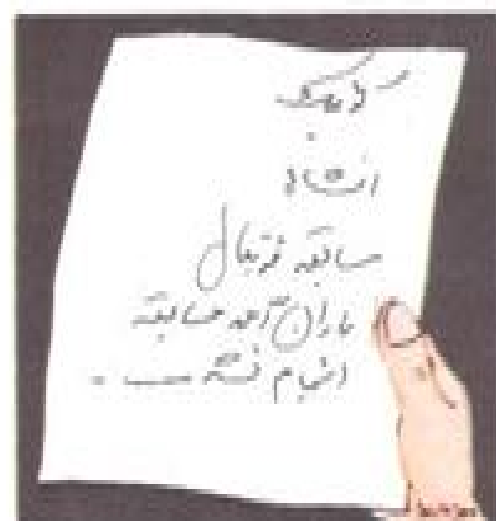 انشاء
مسابقه فوتبال
باران آمد مسابقه
انجام نشد